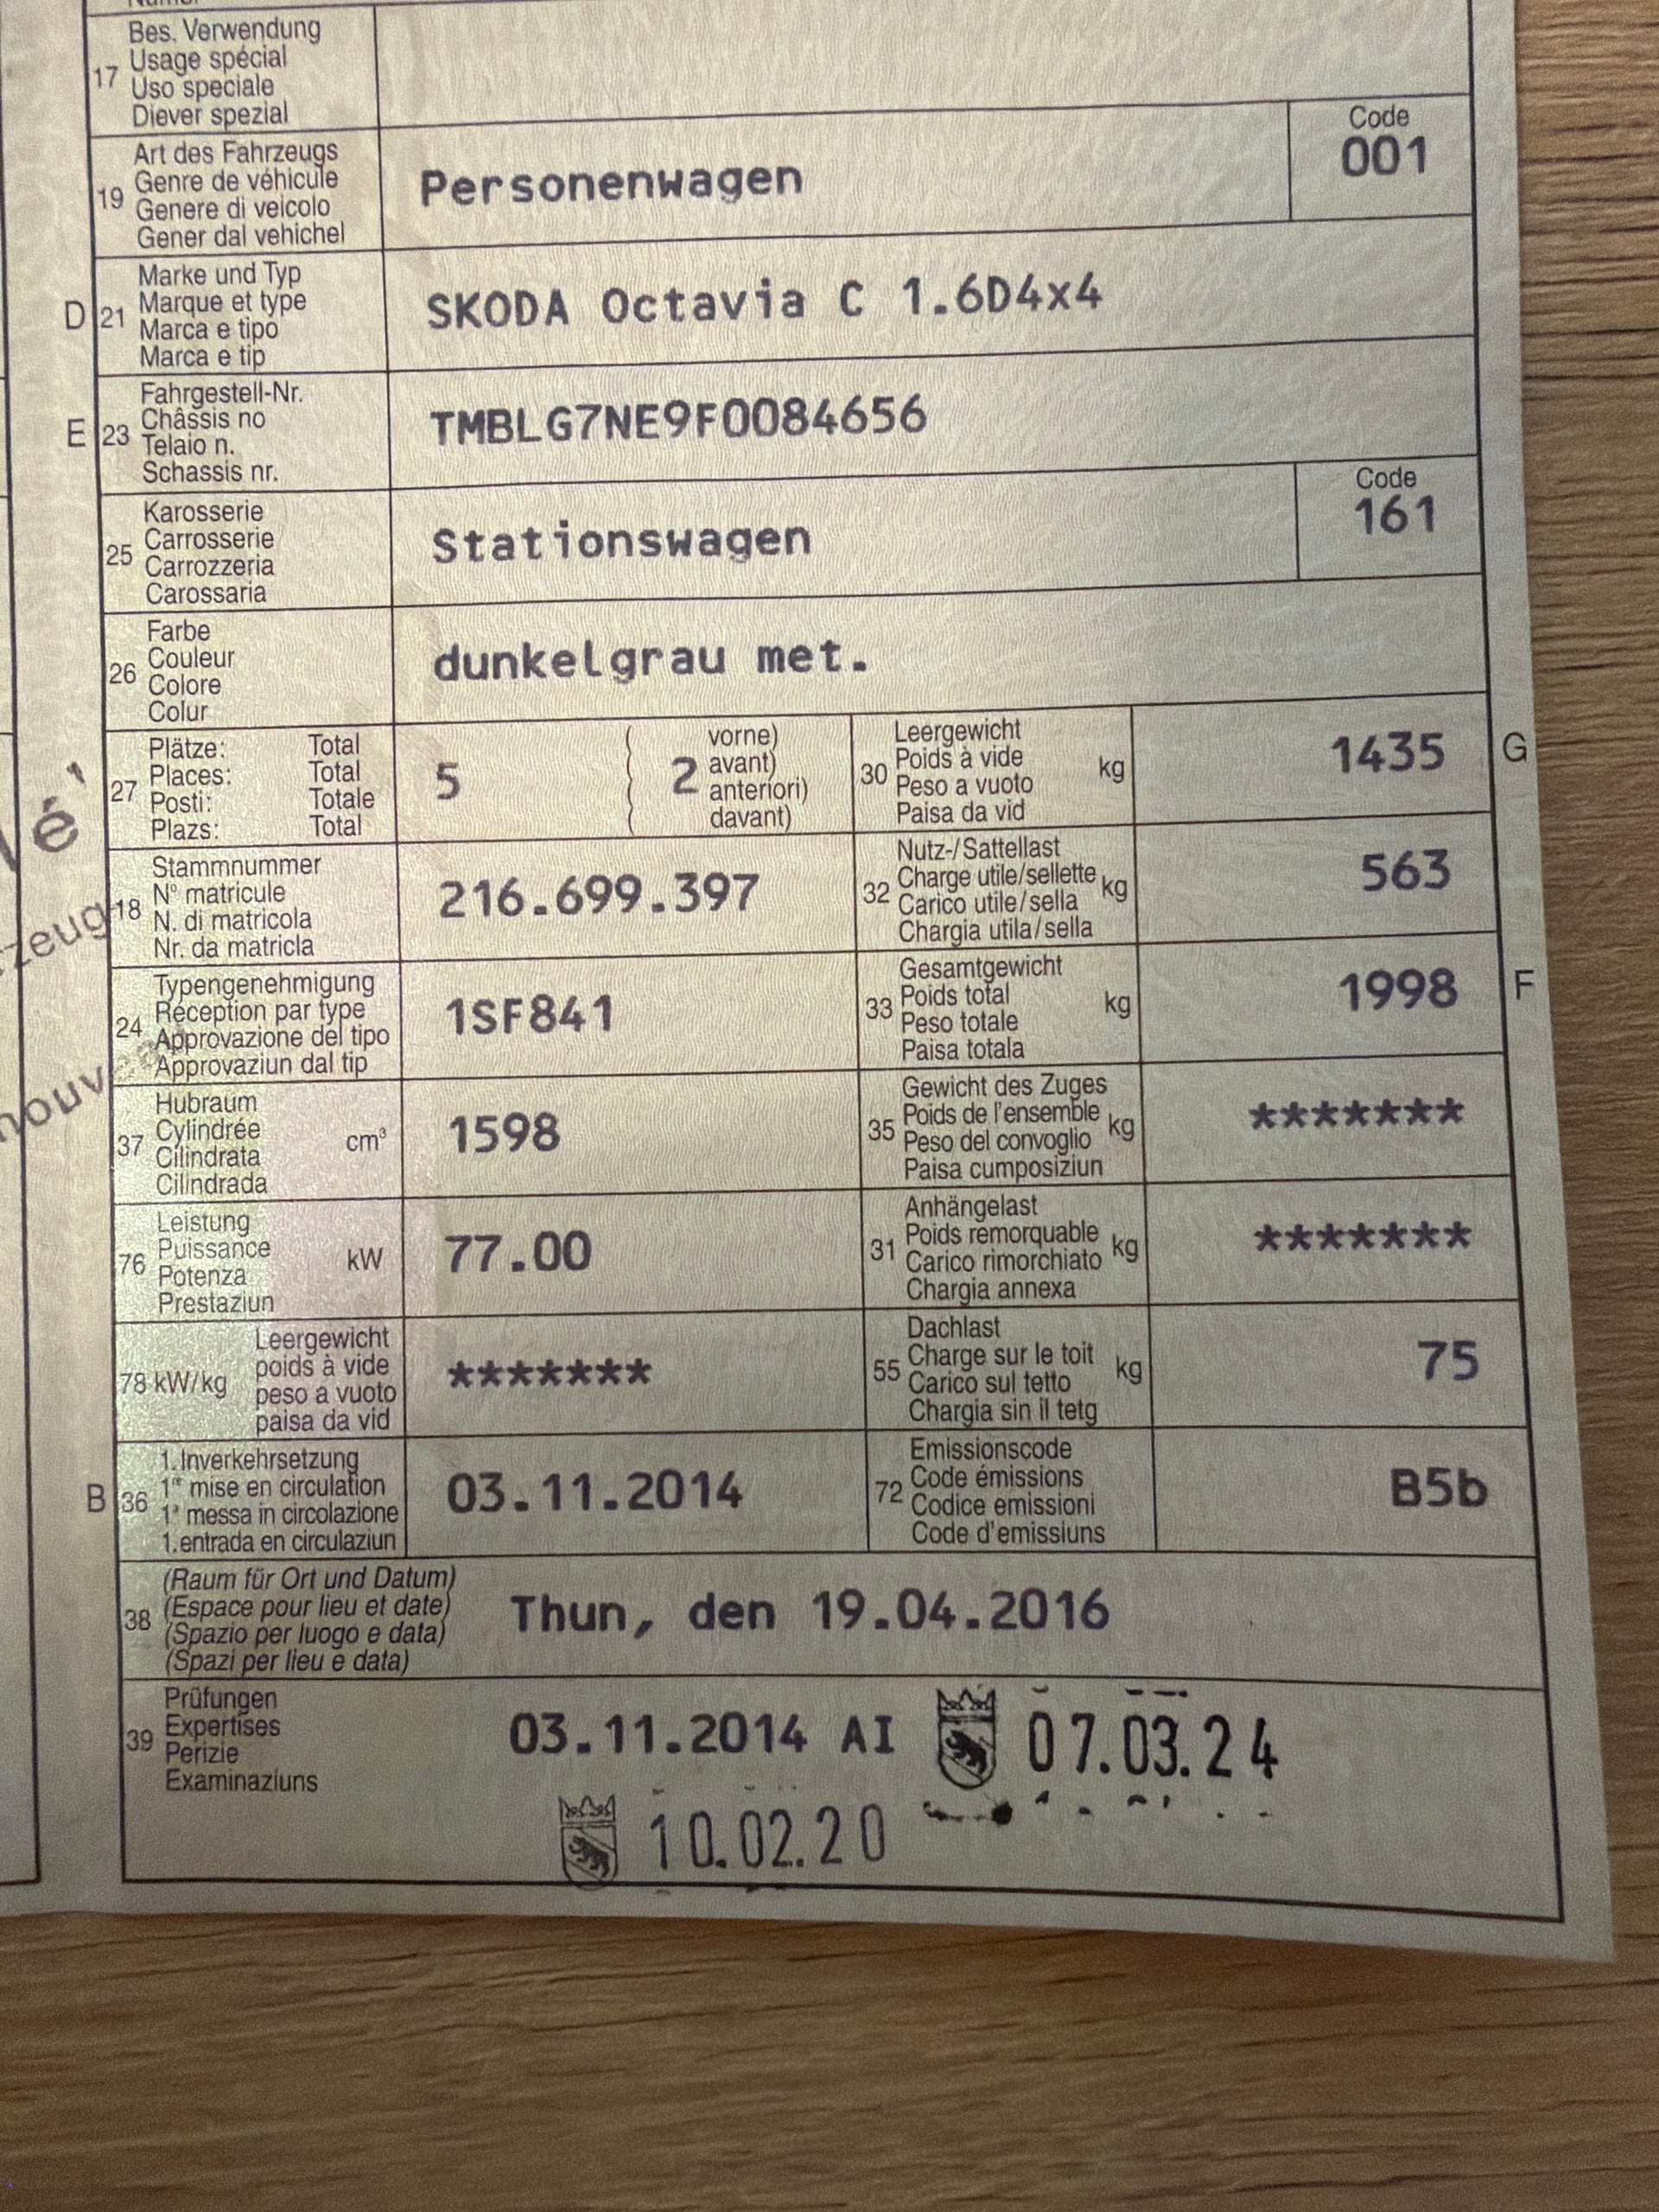 Bes. Verwendung
Usage spécial
17 Uso speciale
Diever spezial
Art des Fahrzeugs
Genre de véhicule
19 Genere di veicolo
Gener dal vehichel
Personenwagen
Code
001
Marke und Typ
D 21 Marque et type
Marca e tipo
Marca e tip
SKODA Octavia C 1.6D4x4
Fahrgestell-Nr.
E 23 Châssis no
Telaio n.
Schassis nr.
TMBLG7NE9F0084656
Karosserie
Carrosserie
25 Carrozzeria
Carossaria
Stationswagen
Code
161
Farbe
Couleur
26 Colore
Colur
dunkelgrau met.
Plätze: Total
Places: Total
27 Posti: Totale
Plazs: Total
5
2
vorne)
avant)
anteriori)
davant)
Leergewicht
Poids à vide
30 Peso a vuoto
Paisa da vid
kg
1435
G
Stammnummer
N° matricule
18 N. di matricola
Nr. da matricla
216.699.397
Nutz-/Sattellast
Charge utile/sellette
32 Carico utile/sella
Chargia utila/sella
kg
563
Typengenehmigung
Réception par type
24 Approvazione del tipo
Approvaziun dal tip
1SF841
Gesamtgewicht
Poids total
33 Peso totale
Paisa totala
kg
1998
F
Hubraum
Cylindrée
37 Cilindrata
Cilindrada
cm³
1598
Gewicht des Zuges
Poids de l'ensemble
35 Peso del convoglio
Paisa cumposiziun
kg
*******
Leistung
Puissance
76 Potenza
Prestaziun
kW
77.00
Anhängelast
Poids remorquable
31 Carico rimorchiato
Chargia annexa
kg
*******
78 kW/kg
Leergewicht
poids à vide
peso a vuoto
paisa da vid
*******
Dachlast
Charge sur le toit
55 Carico sul tetto
Chargia sin il tetg
kg
75
1. Inverkehrsetzung
B 36 1re mise en circulation
1a messa in circolazione
1. entrada en circulaziun
03.11.2014
Emissionscode
72 Code émissions
Codice emissioni
Code d'emissiuns
B5b
(Raum für Ort und Datum)
(Espace pour lieu et date)
38 (Spazio per luogo e data)
(Spazi per lieu e data)
Thun, den 19.04.2016
Prüfungen
Expertises
39 Perizie
Examinaziuns
03.11.2014 AI
07.03.24
10.02.20